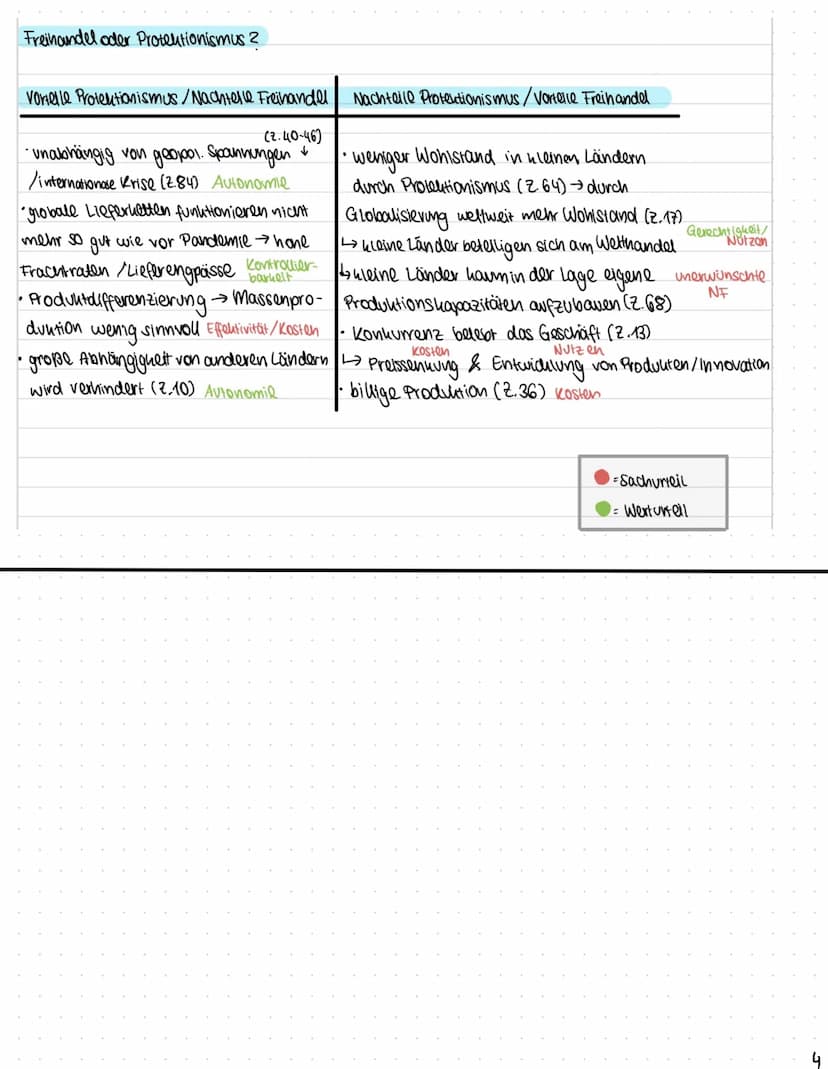 Freihandel oder Protektionismus?
Vorteile Protektionismus / Nachteile Freihandel
(Z. 40-46)
· unabhängig von geopol. Spannungen ↓
/internationale Krise (Z.84) Autonomie
· globale Lieferketten funktionieren nicht
mehr so gut wie vor Pandemie → hohe
Frachtraten / Lieferengpässe Kontrollier-
barkeit
· Produktdifferenzierung → Massenpro-
duktion wenig sinnvoll Effektivität/Kosten
· große Abhängigkeit von anderen Ländern
wird verhindert (Z.10) Autonomie
Nachteile Protektionismus / Vorteile Freihandel
· weniger Wohlstand in kleinen Ländern
durch Protektionismus (Z 64) → durch
Globalisierung weltweit mehr Wohlstand (Z.17)
Gerechtigkeit/
Nutzen
↳ kleine Länder beteiligen sich am Welthandel
↳ kleine Länder kaum in der Lage eigene unerwünschte
NF
Produktionskapazitäten aufzubauen (Z.68)
· Konkurrenz belebt das Geschäft (Z.13)
Kosten Nutzen
↳ Preissenkung & Entwicklung von Produkten/Innovation
· billige Produktion (Z.36) Kosten
= Sachurteil
= Werturteil
4